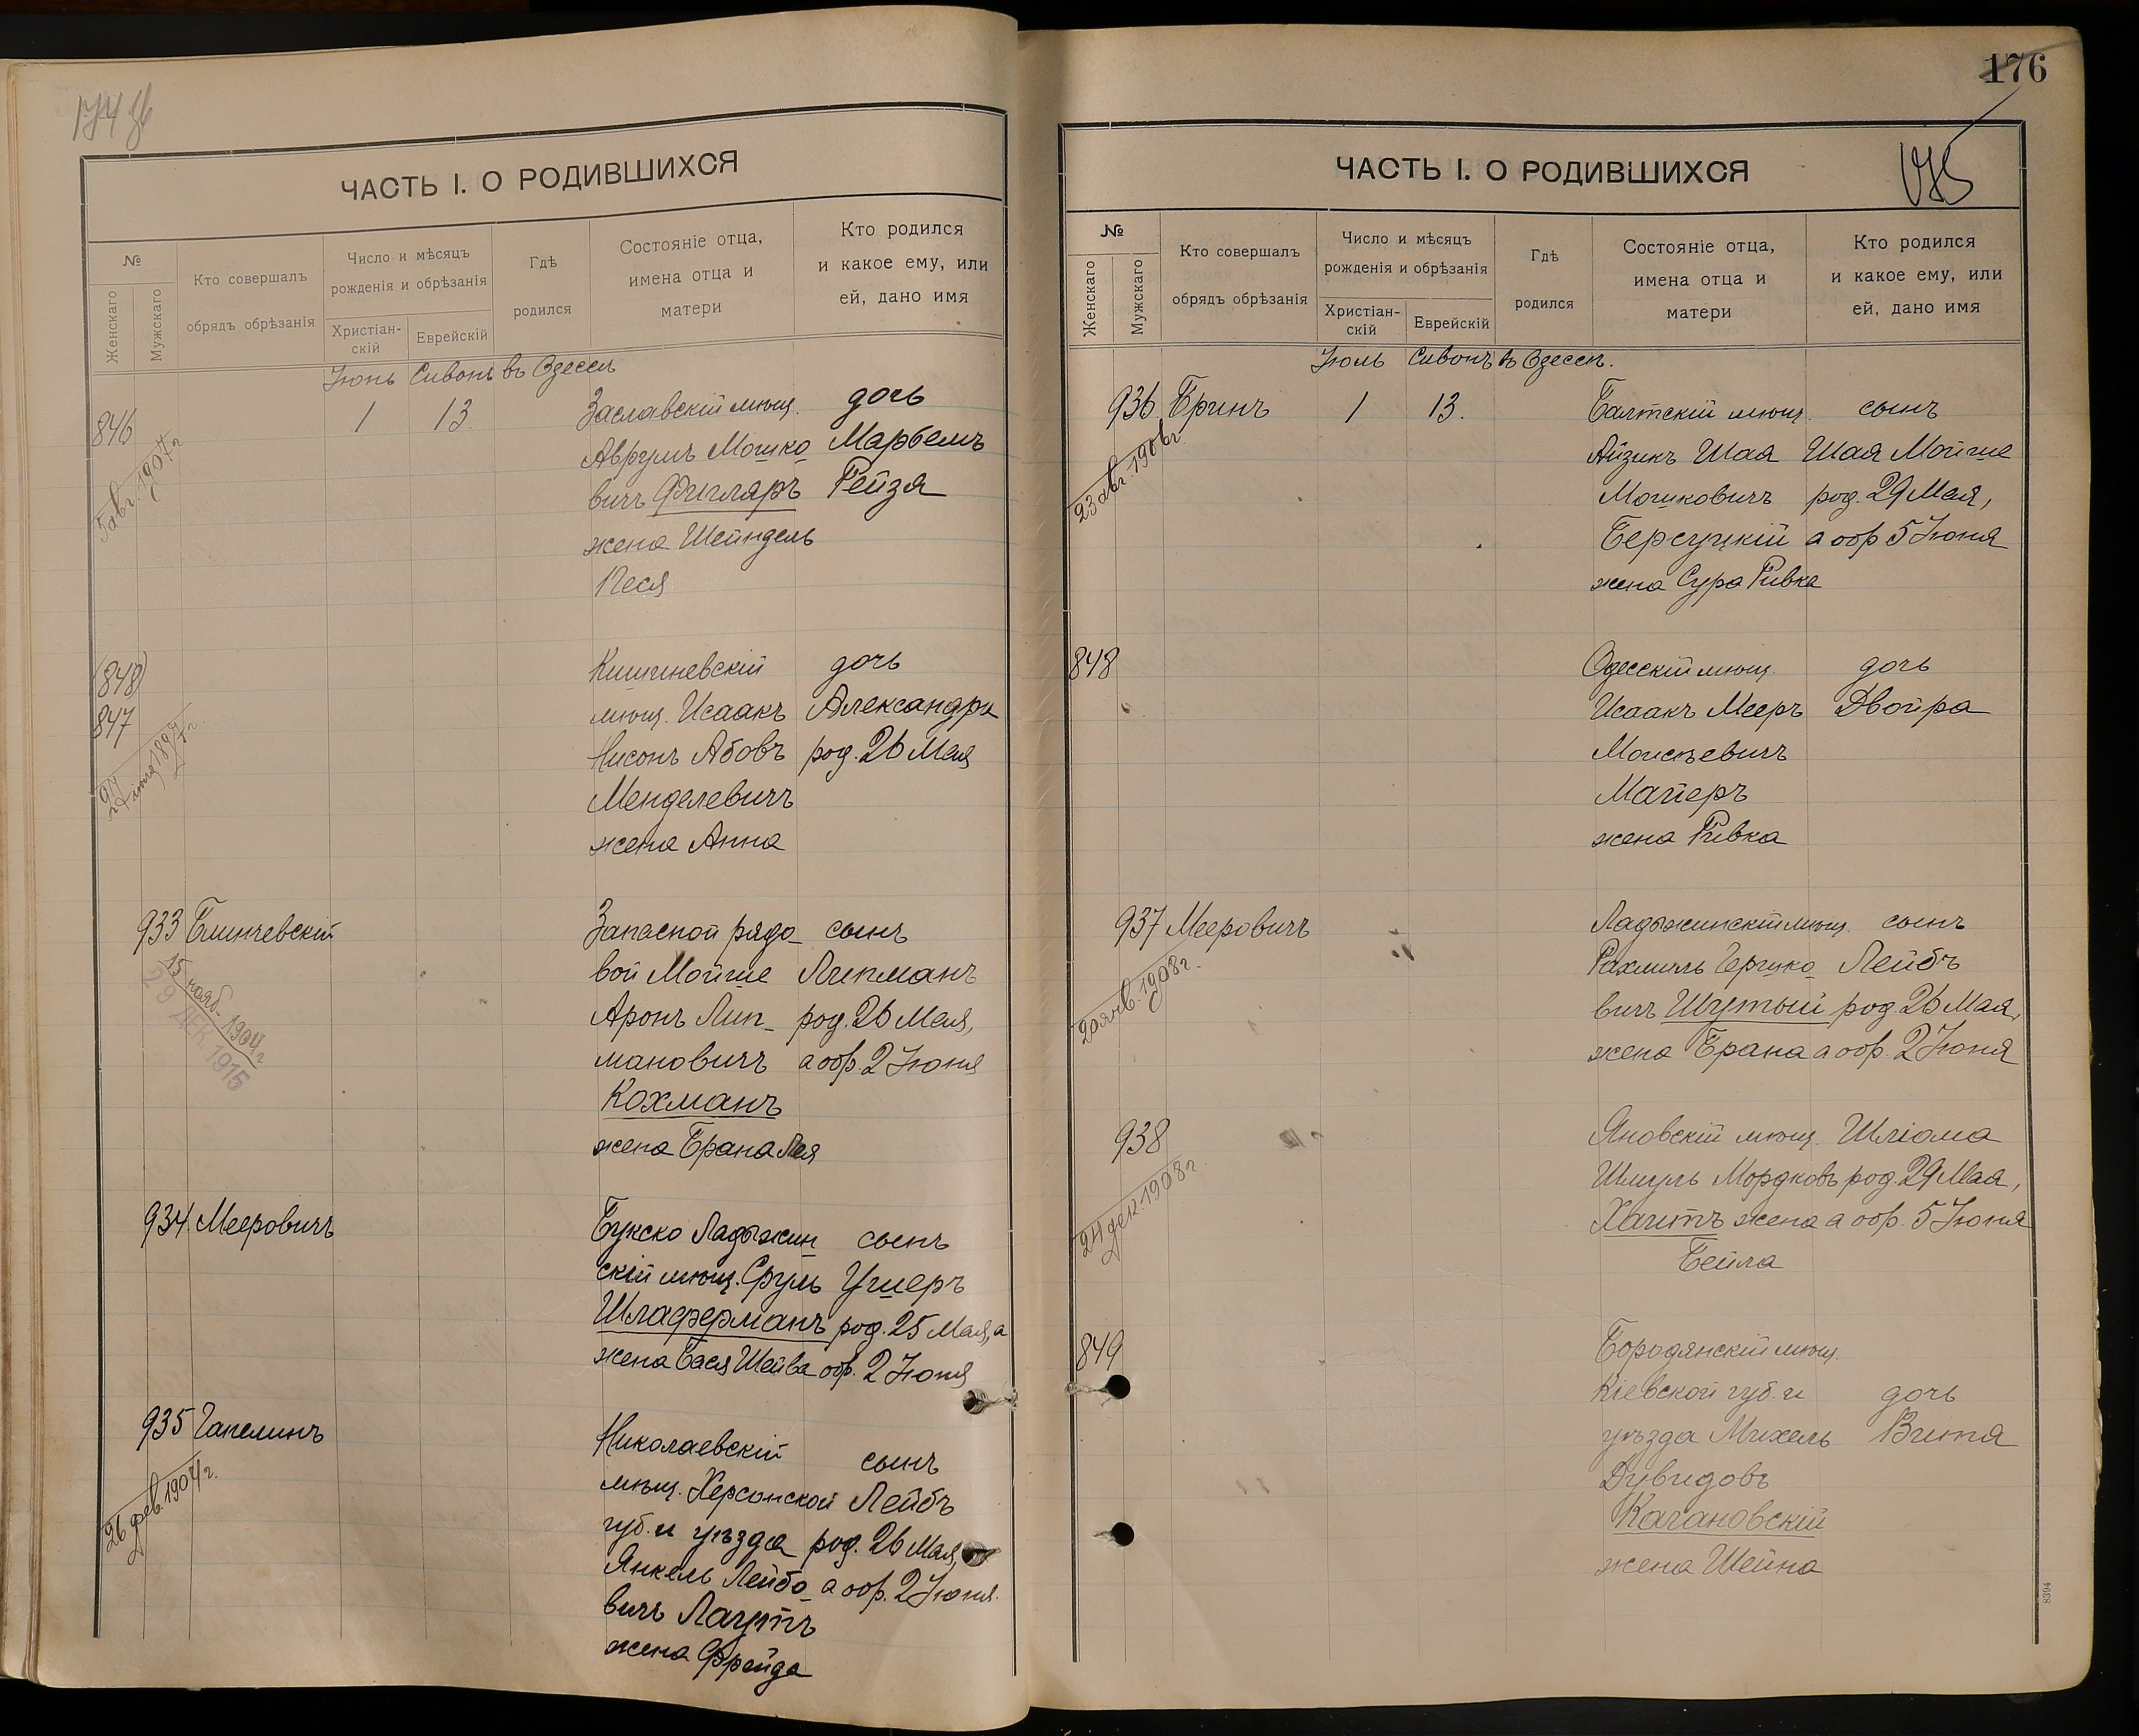 ЧАСТЬ I. О РОДИВШИХСЯ
№
Женскаго
Мужскаго
Кто совершалъ
обрядъ обрѣзанія
Число и мѣсяцъ
рожденія и обрѣзанія
Христіан-
скій
Еврейскій
Гдѣ
родился
Состояніе отца,
имена отца и
матери
Кто родился
и какое ему, или
ей, дано имя
Іюнь Сивонъ въ Одессѣ
846 1 13. Заславскій мѣщ. дочь
5 авг. 1907 г.
Аврумъ Мошко Марбемъ
вичъ Фигляръ Рейзя
жена Шейндель
Песя
(848) Кишиневскій дочь
847 мѣщ. Исаакъ Александра
Нисонъ Абовъ род. 26 Мая
Менделевичъ
жена Анна
933 Блинчевскій Запасной рядо- сынъ
15 нояб. 1904 г.
29 ДЕК 1915
вой Мойше Липманъ
Аронъ Лип- род. 26 Мая,
мановичъ а обр. 2 Іюня
Кохманъ
жена Брана Лея
934 Мееровичъ Букско Ладыжин сынъ
скій мѣщ. Сруль Ушеръ
Шлаферманъ род. 25 Мая, а
жена Бася Шейва обр. 2 Іюня
935 Чапелинъ Николаевскій сынъ
26 фев. 1904 г.
мѣщ. Херсонской Лейбъ
губ. и уѣзда род. 26 Мая,
Янкель Лейбо а обр. 2 Іюня.
вичъ Лаутъ
жена Фрейда
176
175
ЧАСТЬ I. О РОДИВШИХСЯ
№
Женскаго
Мужскаго
Кто совершалъ
обрядъ обрѣзанія
Число и мѣсяцъ
рожденія и обрѣзанія
Христіан-
скій
Еврейскій
Гдѣ
родился
Состояніе отца,
имена отца и
матери
Кто родился
и какое ему, или
ей, дано имя
Іюнь Сивонъ въ Одессѣ.
936 Бринъ 1 13. Балтскій мѣщ. сынъ
23 авг. 1906 г.
Айзикъ Шая Шая Мойше
Мошковичъ род. 29 Мая,
Берсуцкій а обр 5 Іюня
жена Сура Ривка
848 Одесскій мѣщ. дочь
Исаакъ Мееръ Двойра
Моисѣевичъ
Майеръ
жена Ривка
937 Мееровичъ Ладыжинскій мѣщ. сынъ
20 янв. 1908 г.
Рахмиль Гершко Лейбъ
вичъ Шутый род. 26 Мая,
жена Брана а обр. 2 Іюня
938 Яновскій мѣщ. Шліома
24 дек. 1908 г.
Шмуль Мордковъ род. 29 Мая,
Хаитъ жена а обр. 5 Іюня
Бейла
849 Бородянскій мѣщ.
Кіевской губ. и дочь
уѣзда Михель Витя
Дувидовъ
Качановскій
жена Шейна
8394